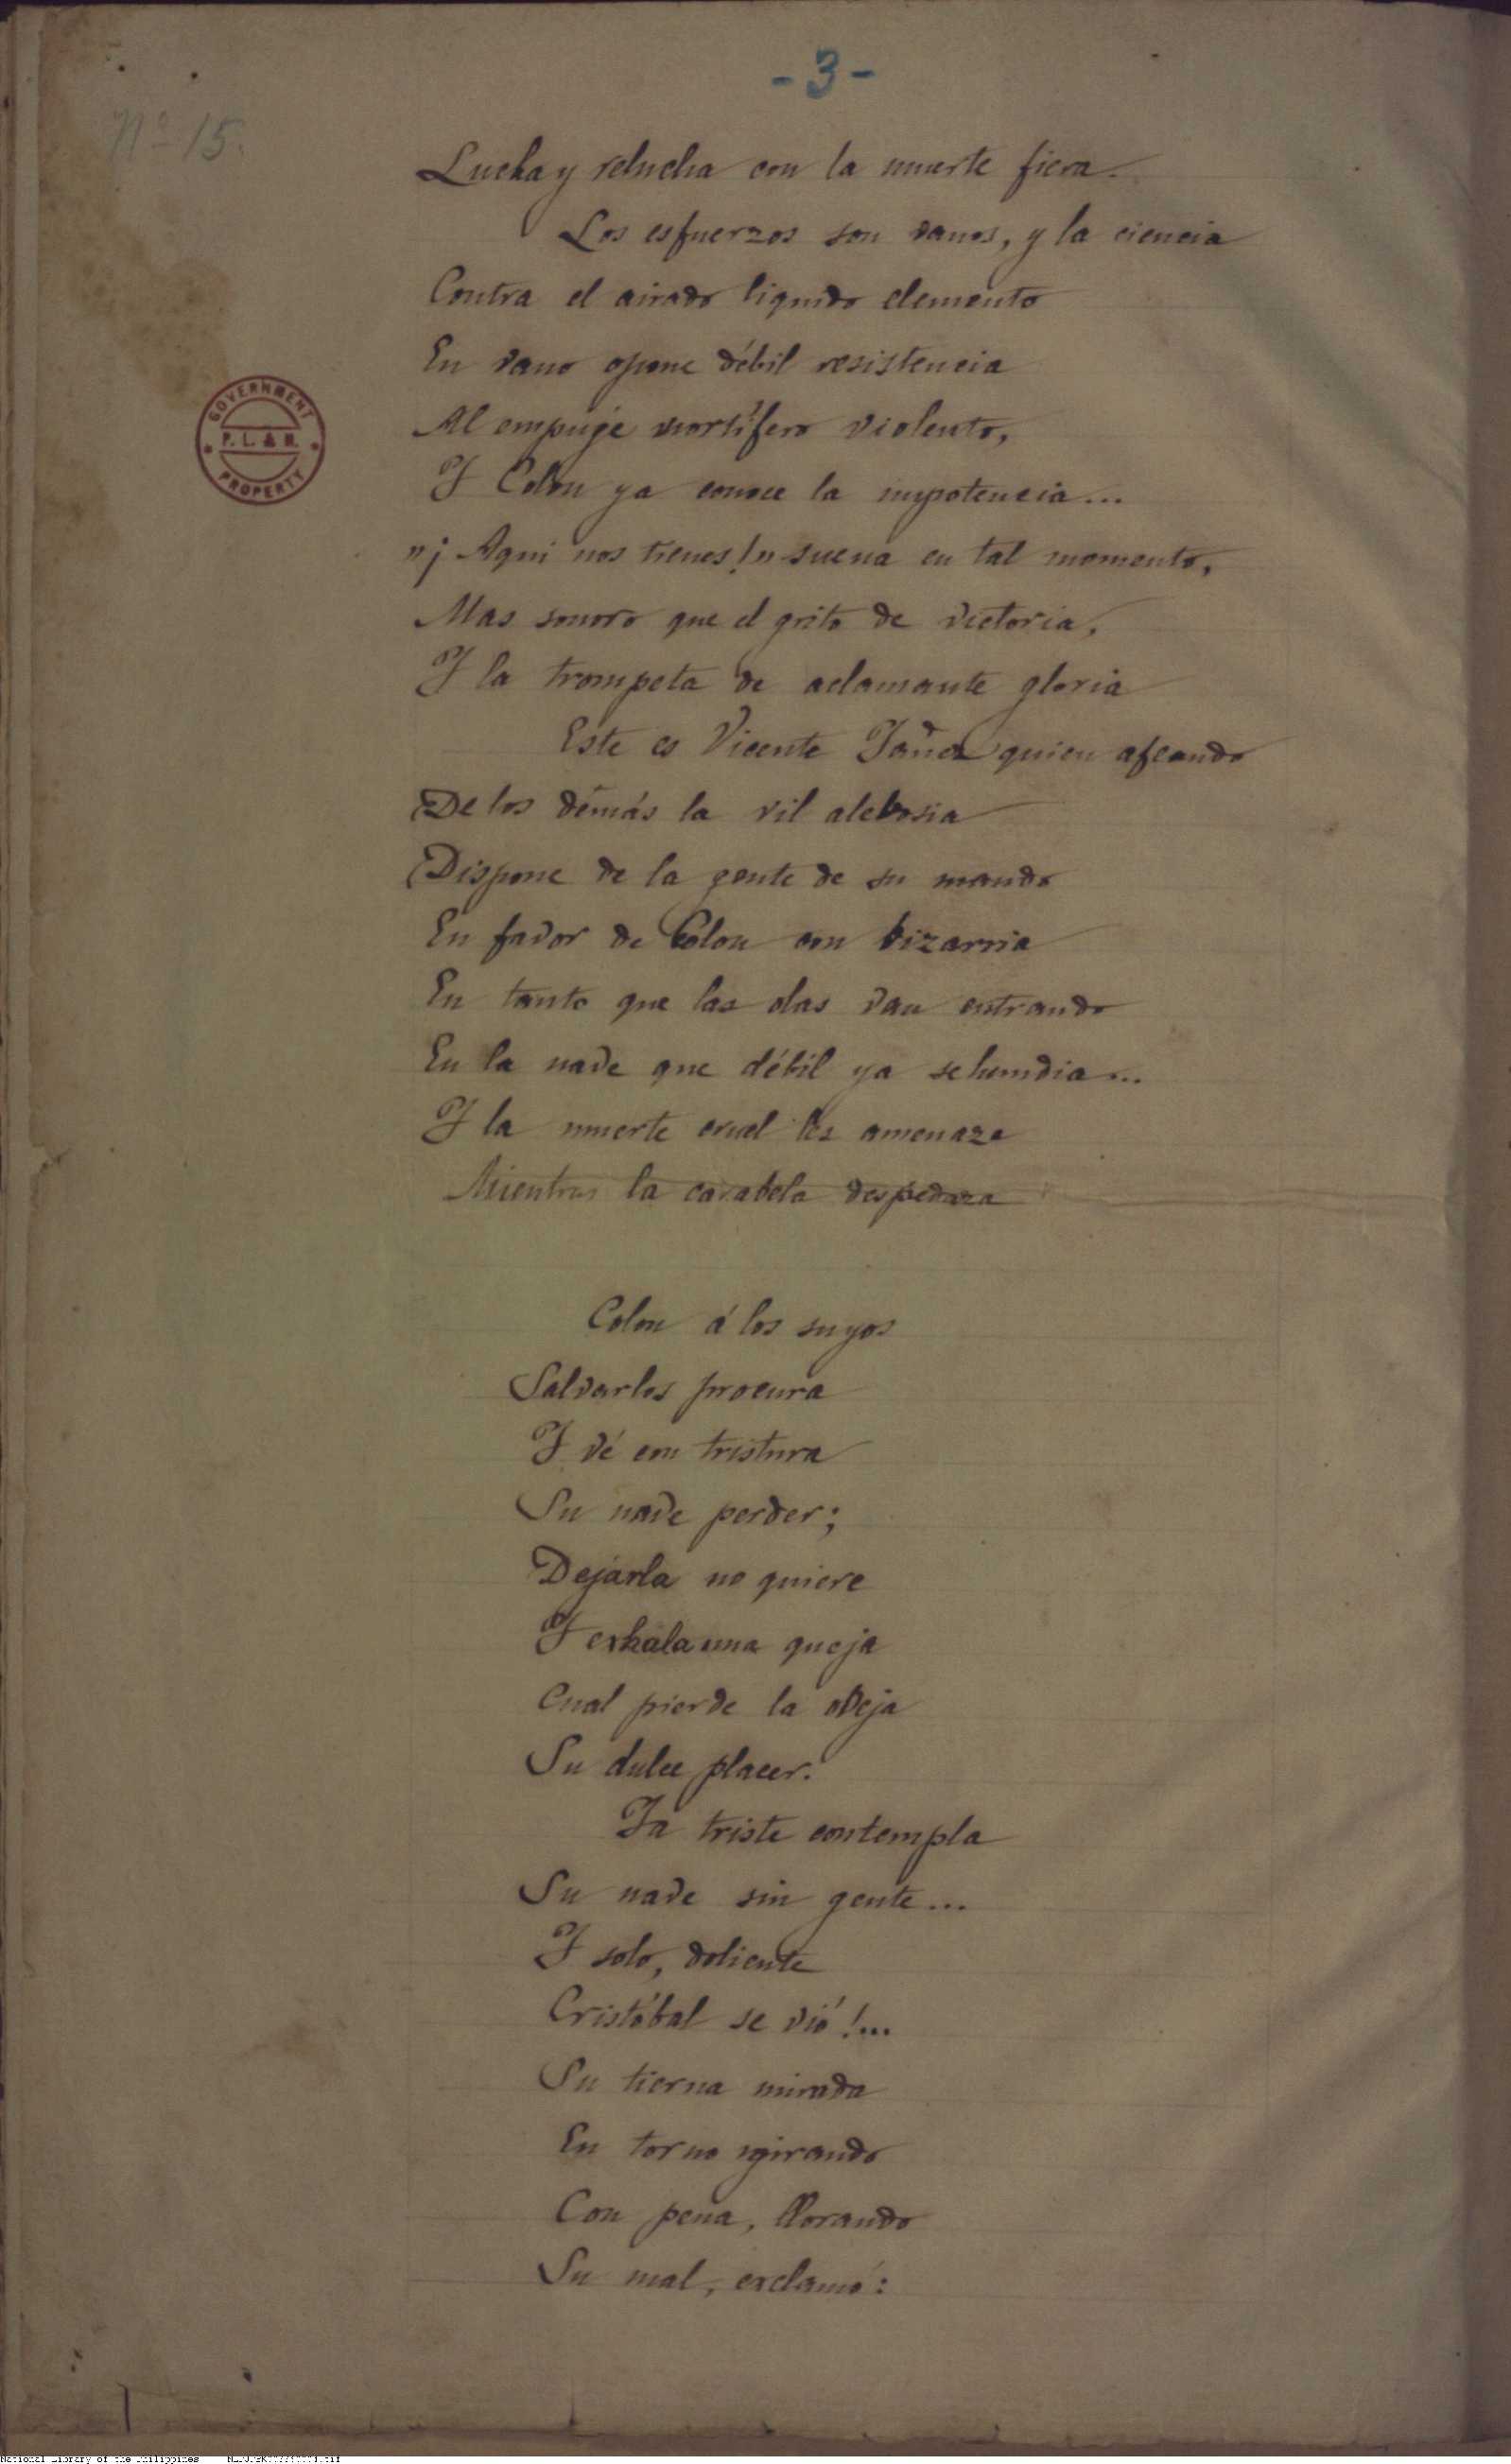 - 3 -
Nº 15.
Lucha y relucha con la muerte fiera.
Los esfuerzos son vanos, y la ciencia
Contra el airado liquido elemento
En vano opone débil resistencia
GOVERNMENT
P. L. & M.
PROPERTY
Al empuje mortífero violento,
Y Colon ya conoce la impotencia...
"¡Aqui nos tienes!" suena en tal momento,
Mas sonoro que el grito de victoria,
Y la trompeta de aclamante gloria
Este es Vicente Yañez quien afeando
De los demás la vil alebosia
Dispone de la gente de su mando
En favor de Colon con bizarria
En tanto que las olas van entrando
En la nave que débil ya se hundia...
Y la muerte cruel les amenaza
Mientras la carabela despedaza
Colon á los suyos
Salvarlos procura
Y vé con tristura
Su nave perder;
Dejárla no quiere
Y exhala una queja
Cual pierde la oveja
Su dulce placer.
Ya triste contempla
Su nave sin gente...
Y solo, doliente
Cristóbal se vió!...
Su tierna mirada
En torno girando
Con pena, llorando
Su mal, exclamó:
National Library of the Philippines